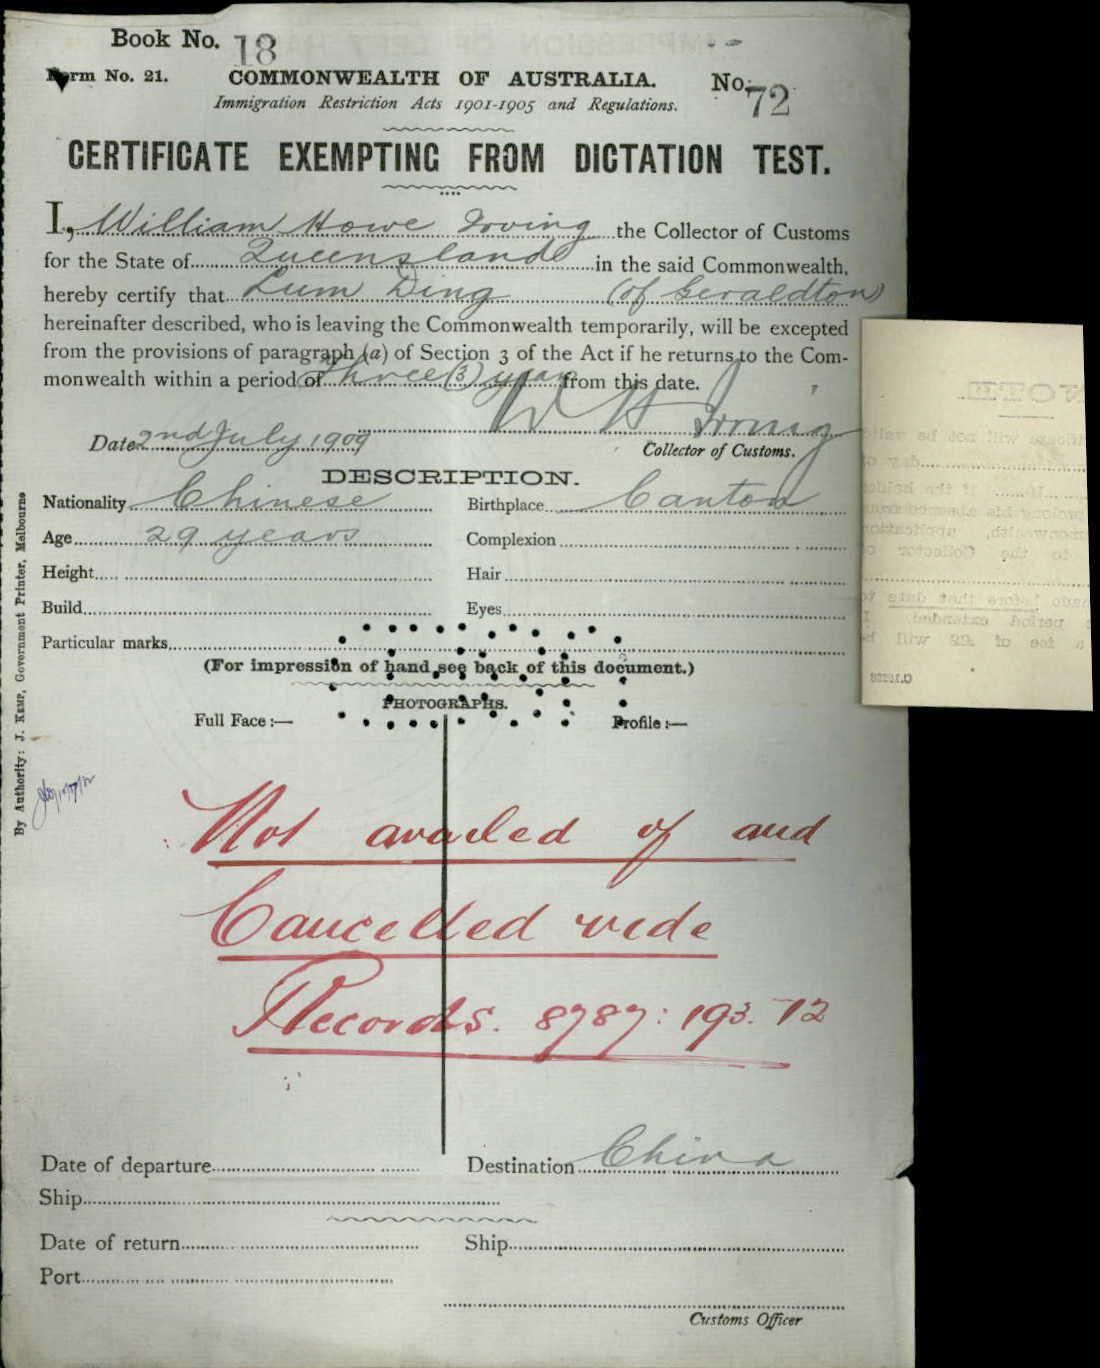 Book No. 18
Form No. 21.
COMMONWEALTH OF AUSTRALIA.
No. 72
Immigration Restriction Acts 1901-1905 and Regulations.
CERTIFICATE EXEMPTING FROM DICTATION TEST.
I, William Howe Irving the Collector of Customs
for the State of Queensland in the said Commonwealth,
hereby certify that Lum Ding (of Geraldton)
hereinafter described, who is leaving the Commonwealth temporarily, will be excepted
from the provisions of paragraph (a) of Section 3 of the Act if he returns to the Com-
monwealth within a period of Three (3) years from this date.
W H Irving
Date 2nd July 1909
Collector of Customs.
DESCRIPTION.
Nationality Chinese Birthplace Canton
Age 29 years Complexion
Height Hair
Build Eyes
Particular marks
(For impression of hand see back of this document.)
PHOTOGRAPHS.
Full Face :— Profile :—
Not availed of and
Cancelled vide
Records. 8787: 193. 12
Date of departure Destination China
Ship
Date of return Ship
Port
Customs Officer
By Authority: J. Kemp, Government Printer, Melbourne
NOTE.
will not be valid
day of
if the holder
prolong his absence
application
to the Collector of
before that date
period extended.
a fee of £2 will be